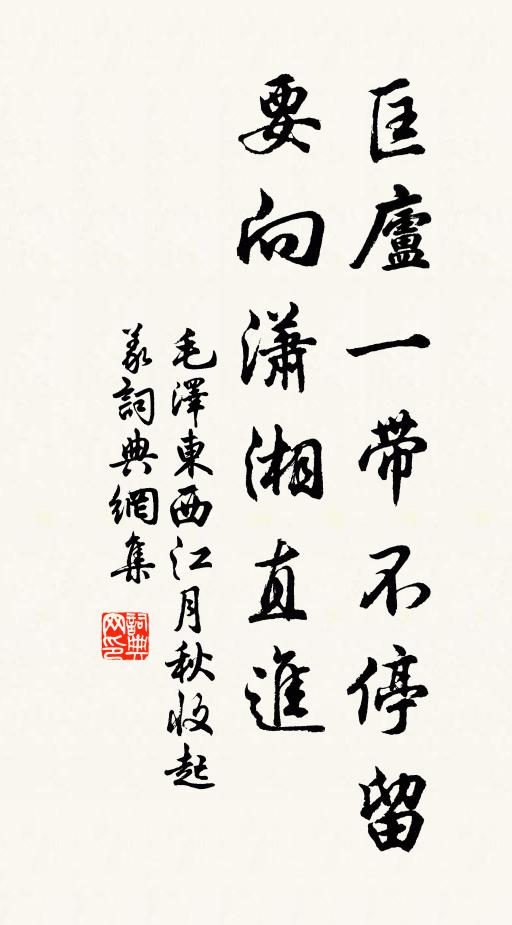 匡廬一帶不停留
要向瀟湘直進
毛澤東西江月秋收起
義詞典網集
詞典
网印